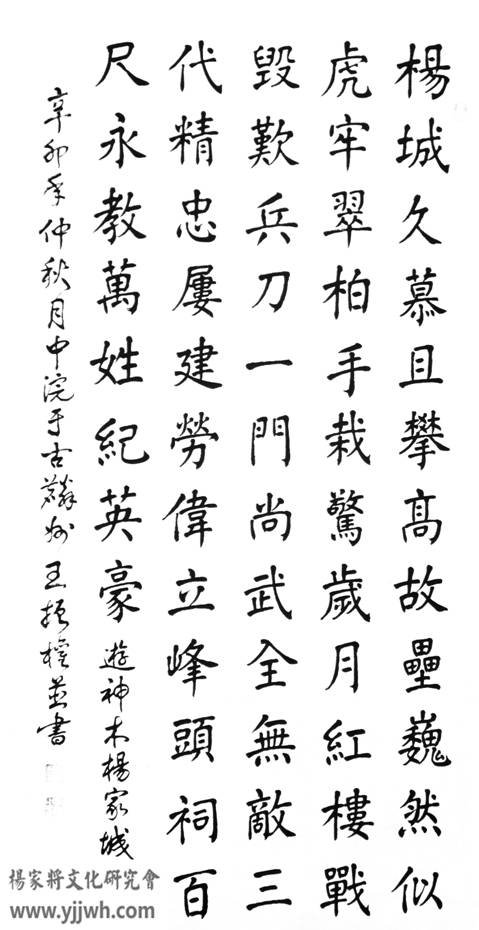 楊城久慕且攀高故壘巍然似
虎牢翠柏手栽驚歲月紅樓戰
毀歎兵刀一門尚武全無敵三
代精忠屢建勞偉立峰頭祠百
尺永教萬姓紀英豪 遊神木楊家城
辛卯年仲秋月中浣于古麟州 王振 並書
楊家將文化研究會
www.yjjwh.com